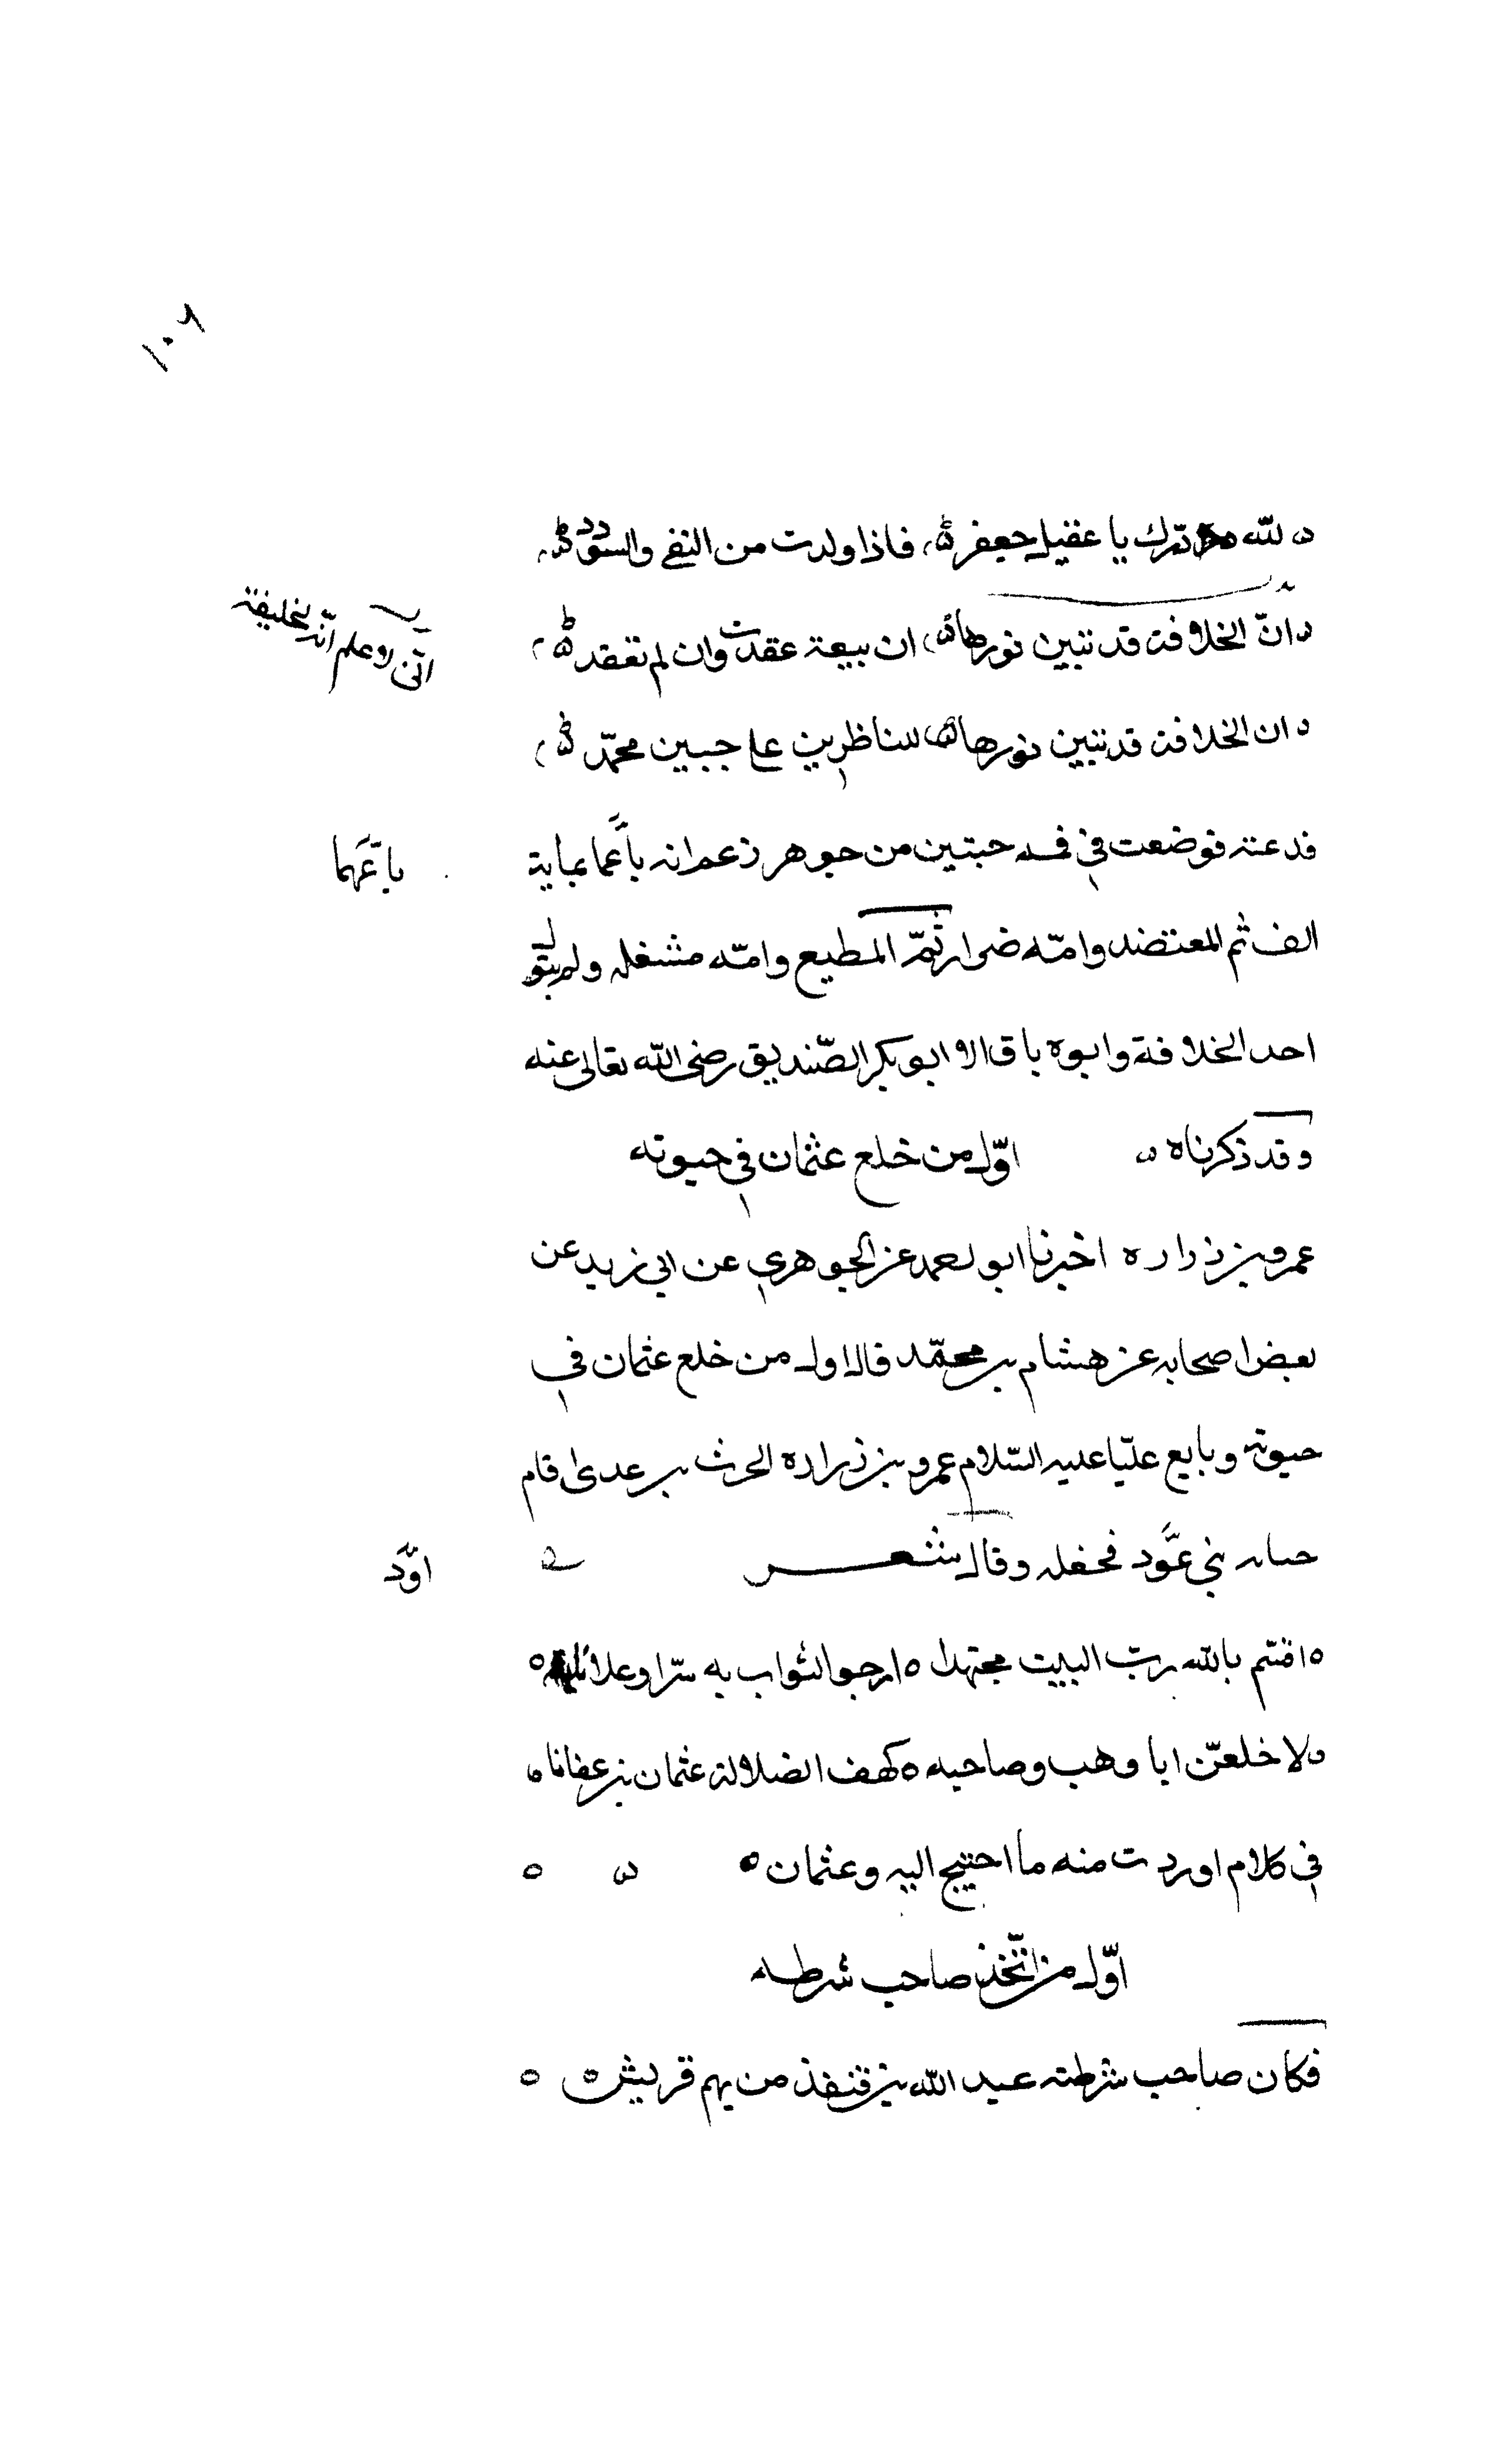 ١٠٦
لله درك يا عقيلة جعفر فاذا ولدت من النفى والسودد
ان الخلافة قد تبين نورها ان بيعة عقدت وان لم تعقد
انى لاعلم انه لخليفة
ان الخلافة قد تبين نورها للناظرين على جبين محمد
فدعته فوضعت في فمه حبتين من جوهر زعم انه باعما بماية
باعهما
الف ثم المعتضد وامّه ضرار ثمّ المطيع وامّه مشغله ولم يتول
احد الخلافة وابوه باق الا ابو بكر الصّديق رضى الله تعالى عنه
وقد ذكرناه اوّل من خلع عثمان في حيوته
عمرو بن زراره اخبرنا ابو احمد عن الجوهري عن ابى زيد عن
بعض اصحابه عن هشام بن محمّد قال اول من خلع عثمان في
حيوته وبايع عليّا عليه السّلام عمرو بن زراره الحرث بن عدى قام
بنى عوّد وقال شعر
اوّد
اقسم بالله ربّ البيت مجتهدا ارجو الثواب به سرّا وعلانا
لاخلعنّ ابا وهب وصاحبه كهف الضلالة عثمان بن عفانا
في كلام اوردت منه ما احتيج اليه وعثمان
اوّل من اتّخذ صاحب شرطه
فكان صاحب شرطته عبد الله بن قنفذ من يهم قريش